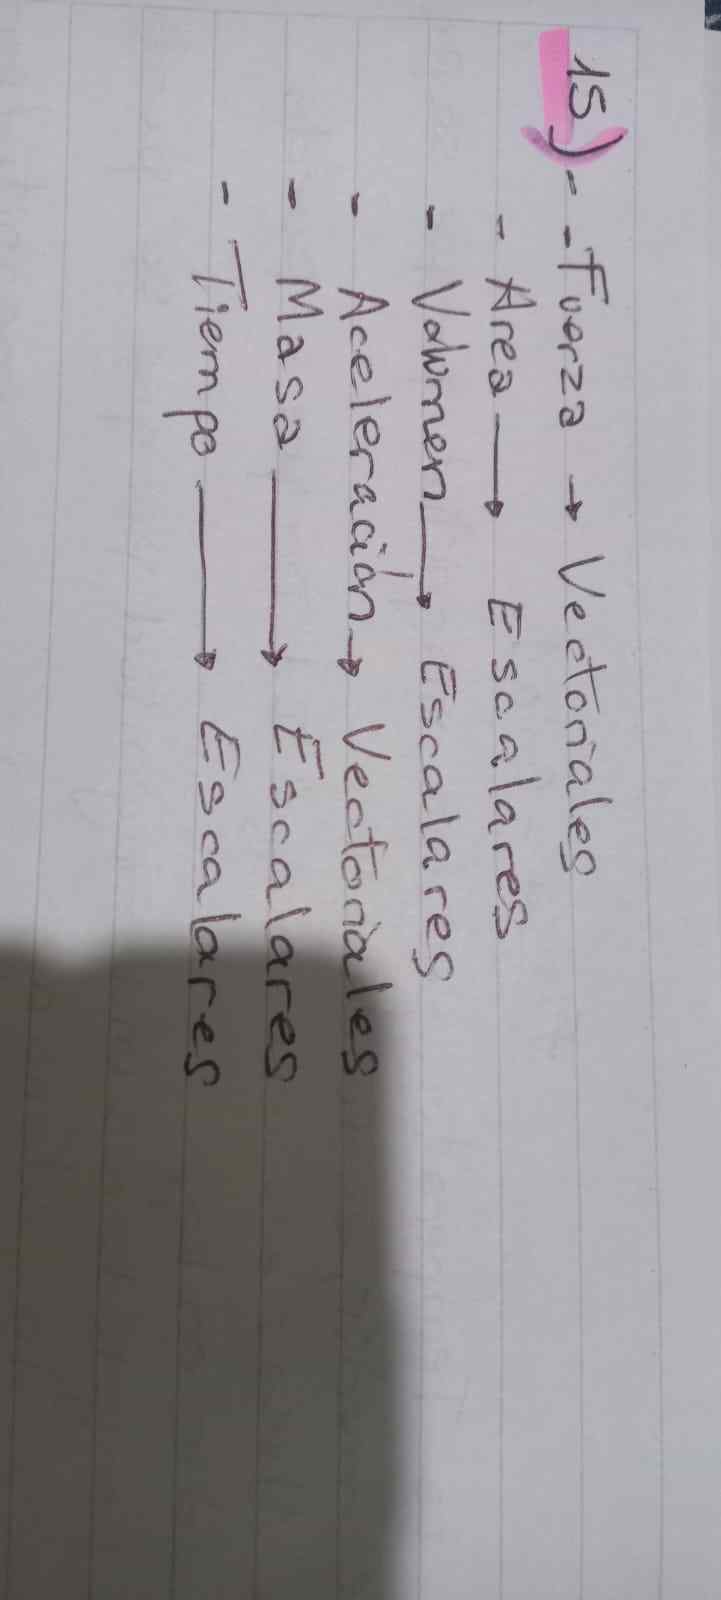 15) - - Fuerza → Vectoriales
- Area → Escalares
- Volumen → Escalares
- Aceleración → Vectoriales
- Masa → Escalares
- Tiempo → Escalares